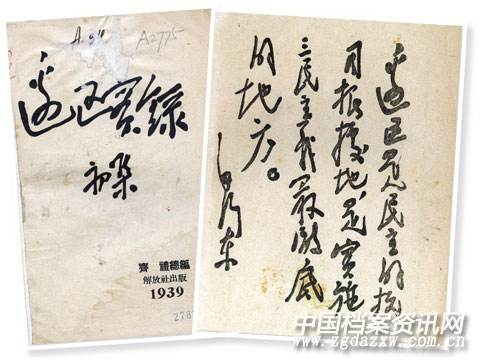 A2775
邊区实錄
初集
齊 禮總編
解放社出版
1939
邊区是民主的抗
日根據地,是實施
三民主義最澈底
的地方。
毛泽东
中国档案资讯网
www.zgdazxw.com.cn